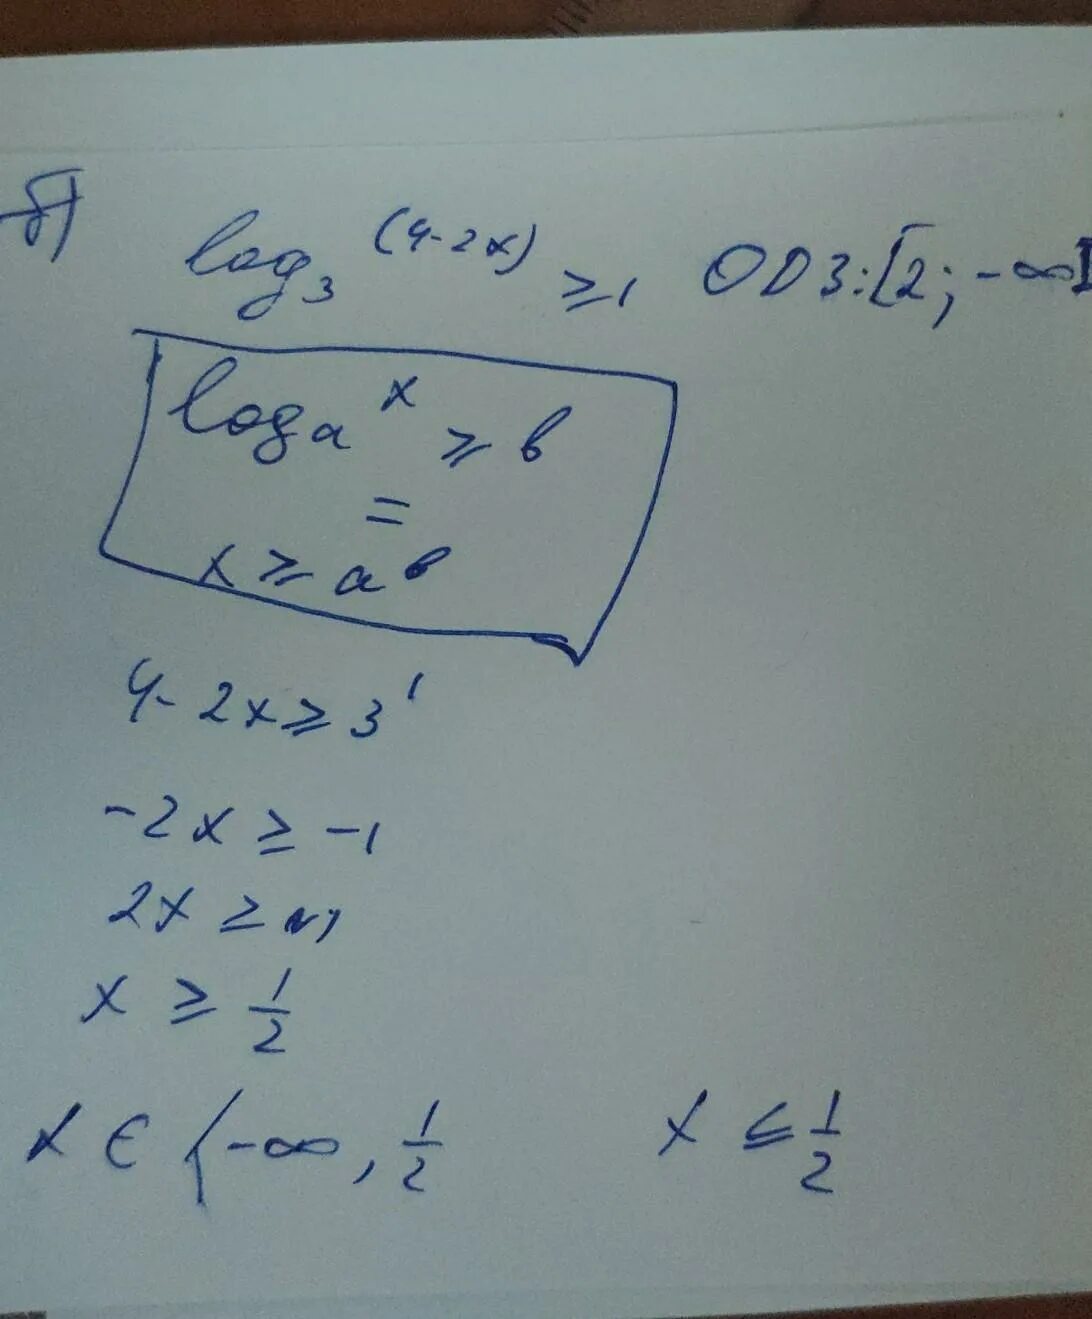 б)
log₃^(4-2x) ≥ 1 ОДЗ: [2; -∞]
logₐ^x ≥ b
=
x ≥ a^b
4 - 2x ≥ 3^1
-2x ≥ -1
2x ≥ 1
x ≥ 1/2
x ∈ (-∞, 1/2 x ≤ 1/2